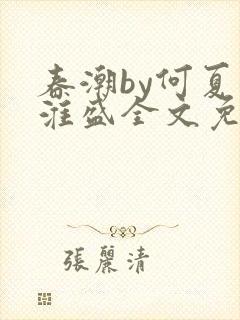 春潮by何夏
淮盛全文免
張麗清